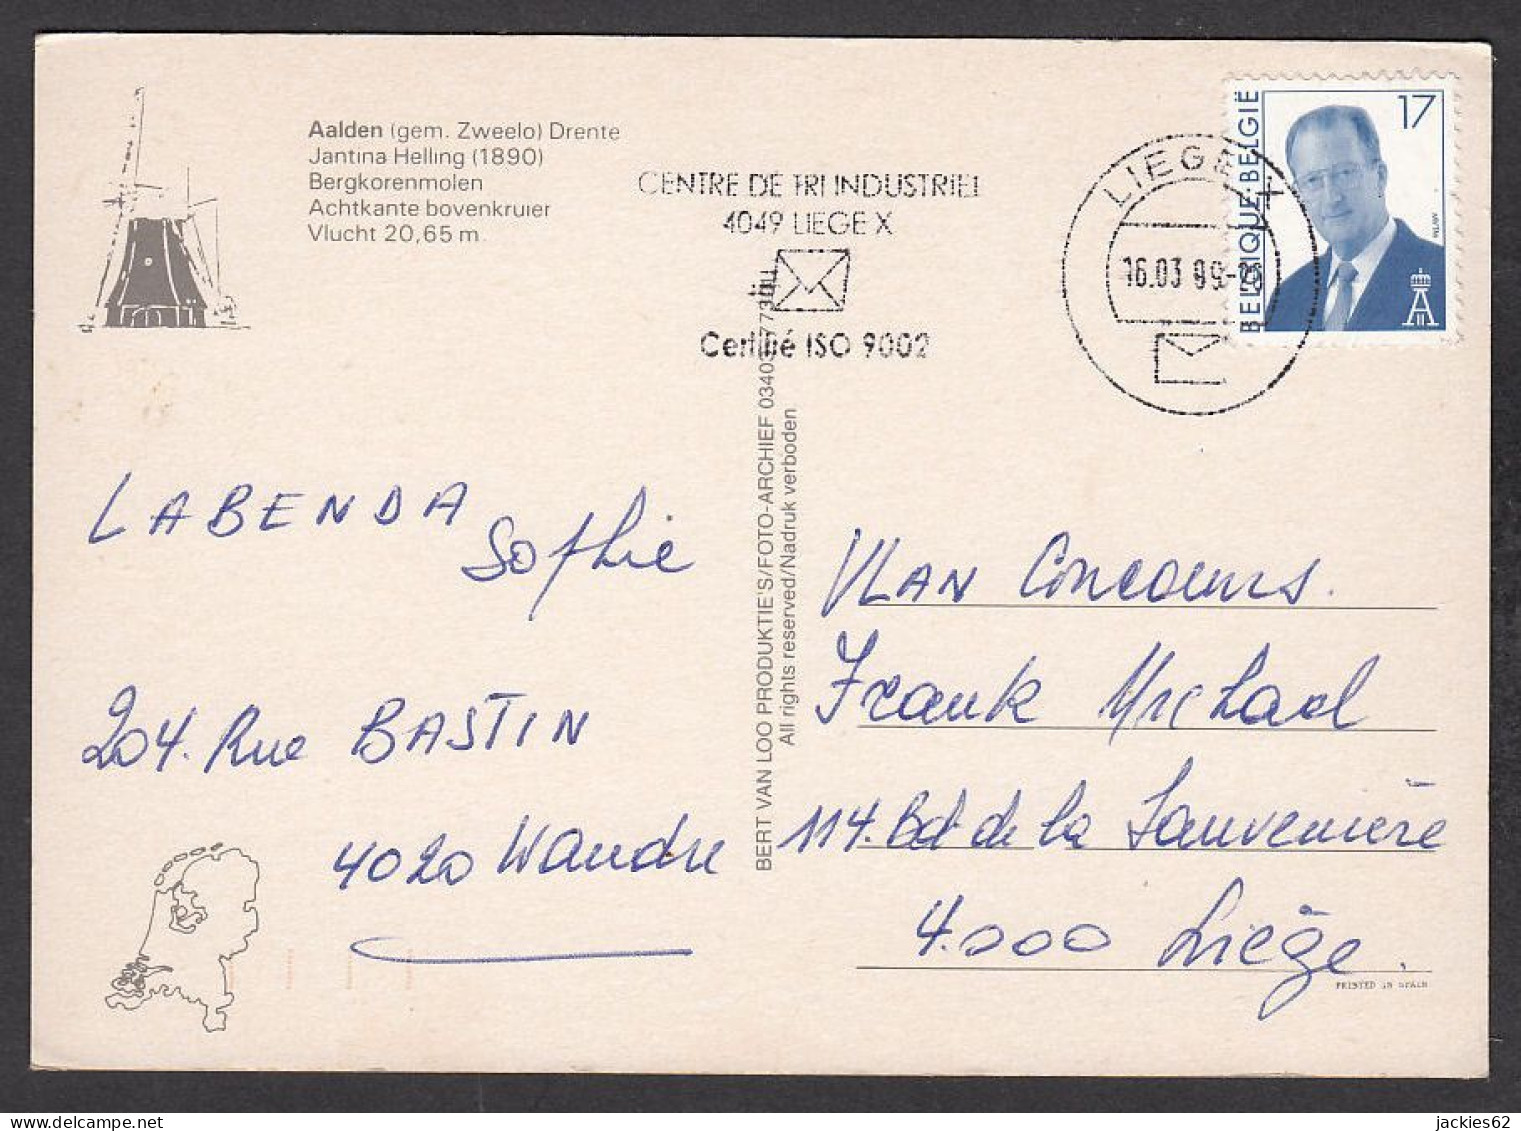 Aalden (gem. Zweelo) Drente
Jantina Helling (1890)
Bergkorenmolen
Achtkante bovenkruier
Vlucht 20,65 m
CENTRE DE TRI INDUSTRIEL
4049 LIEGE X
Certifié ISO 9002
LIEGE X
16.03 99-
BELGIQUE·BELGIË
17
MVTM
LABENDA
Sophie
204. Rue BASTIN
4020 Wandre
BERT VAN LOO PRODUKTIE'S/FOTO-ARCHIEF
All rights reserved/Nadruk verboden
VLAN Concours.
Frank Michael
114. Bd de la Sauvenière
4.000 Liège.
PRINTED IN SPAIN
jackies62